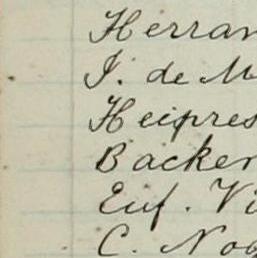 Herran
J. de M
Heipres
Backer
Euf. Vi
C. Nog